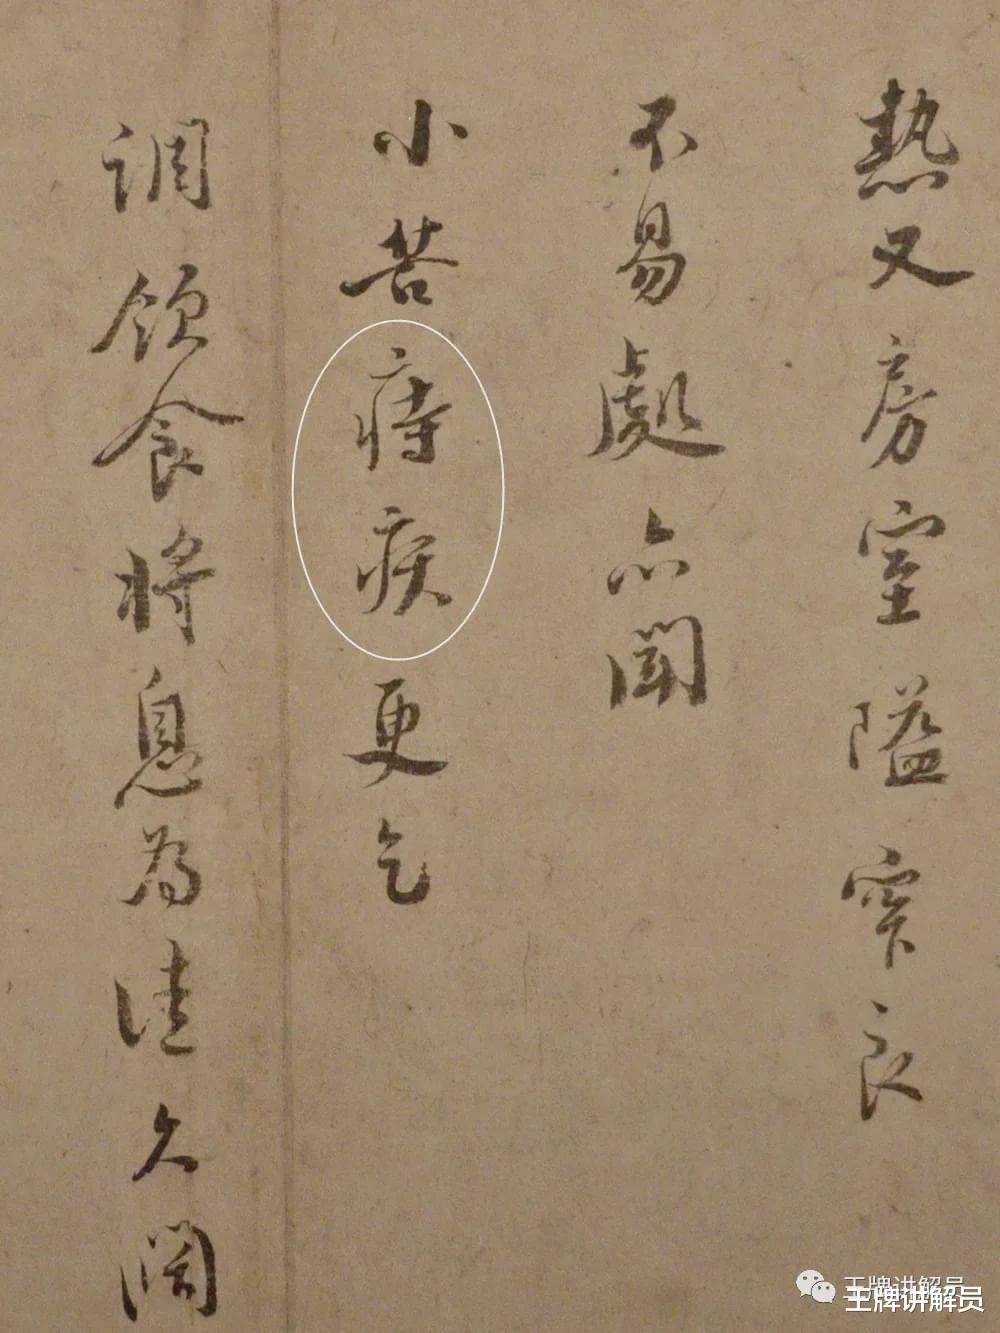 熱又房室隘窄良
不易處亦聞
小苦痔疾更乞
調飲食將息為佳久闊
王牌讲解员
王牌讲解员